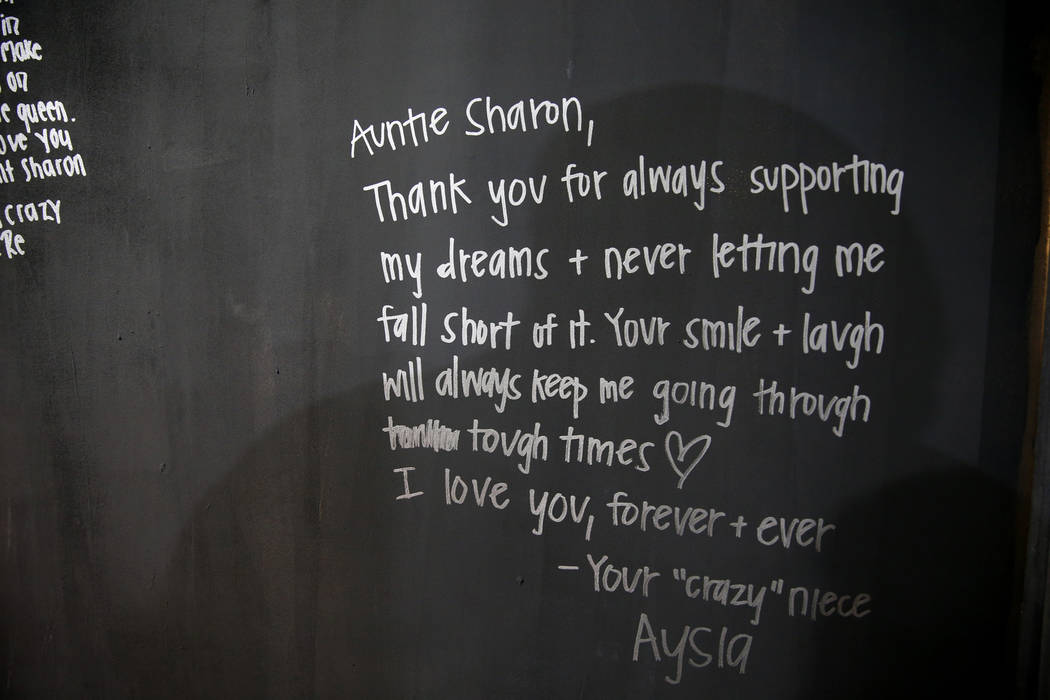 in
make
on
queen.
you
Sharon
crazy
Auntie Sharon,
Thank you for always supporting
my dreams + never letting me
fall short of it. Your smile + laugh
will always keep me going through
tough times ♡
I love you, forever + ever
- Your "crazy" niece
Aysia